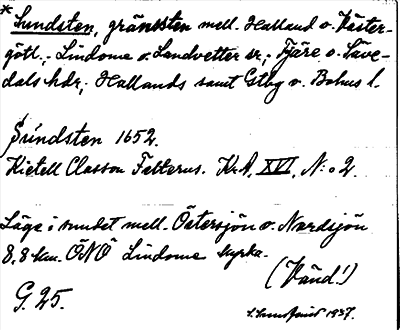 * Sundsten, gränssten mell. Halland o. Väster-
götl.; Lindome o. Landvetter sr; Fjäre o. Säve-
dals hdr; Hallands samt Gtbg o. Bohus l.
Sundsten 1652.
Kietell Classon Felterus. KrA, XVI, N:o 2.
Läge i sundet mell. Östersjön o. Nordsjön
8,8 km. ÖNÖ Lindome kyrka.
(Vänd!)
G. 25.
1937.